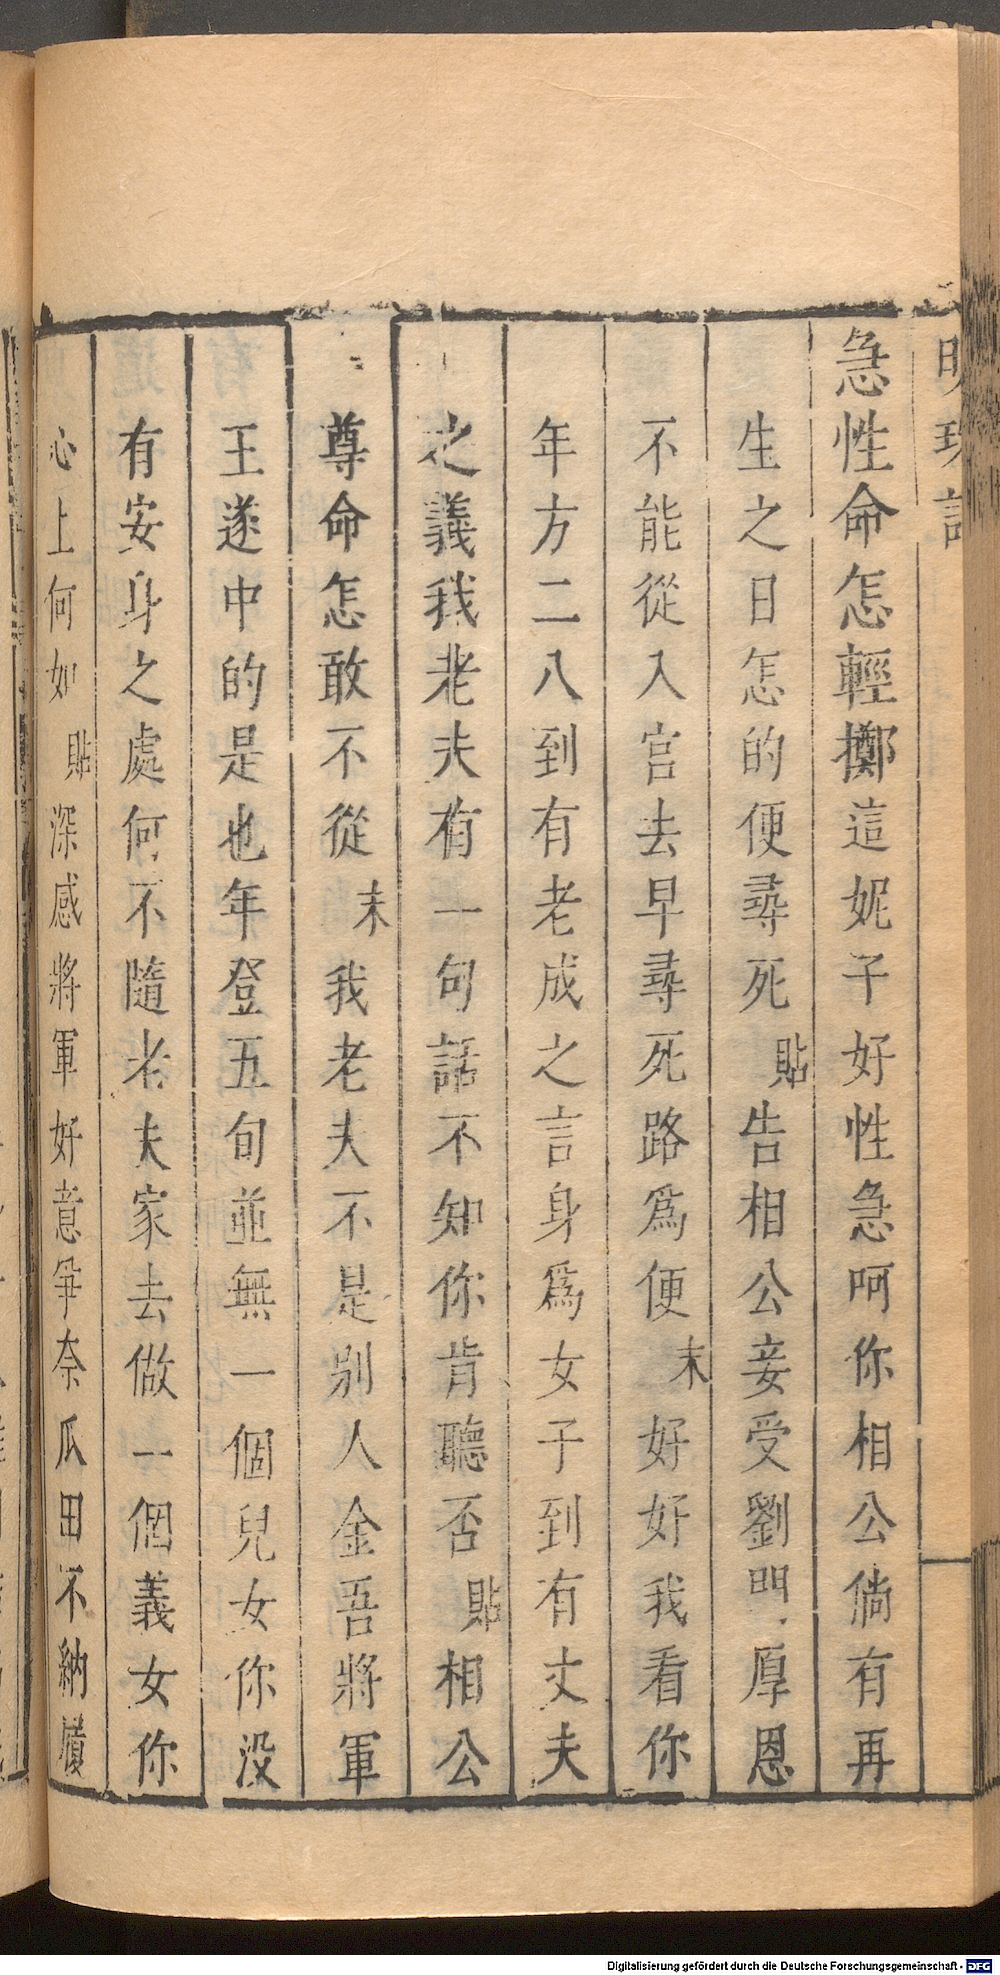 明珠記
急性命怎輕擲這妮子好性急呵你相公倘有再
生之日怎的便尋死貼告相公妾受劉門厚恩
不能從入宫去早尋死路爲便末好好我看你
年方二八到有老成之言身爲女子到有丈夫
之義我老夫有一句話不知你肯聽否貼相公
尊命怎敢不從末我老夫不是别人金吾將軍
王遂中的是也年登五旬並無一個兒女你没
有安身之處何不隨老夫家去做一個義女你
心上何如貼深感將軍好意争奈瓜田不納履
Digitalisierung gefördert durch die Deutsche Forschungsgemeinschaft - DFG